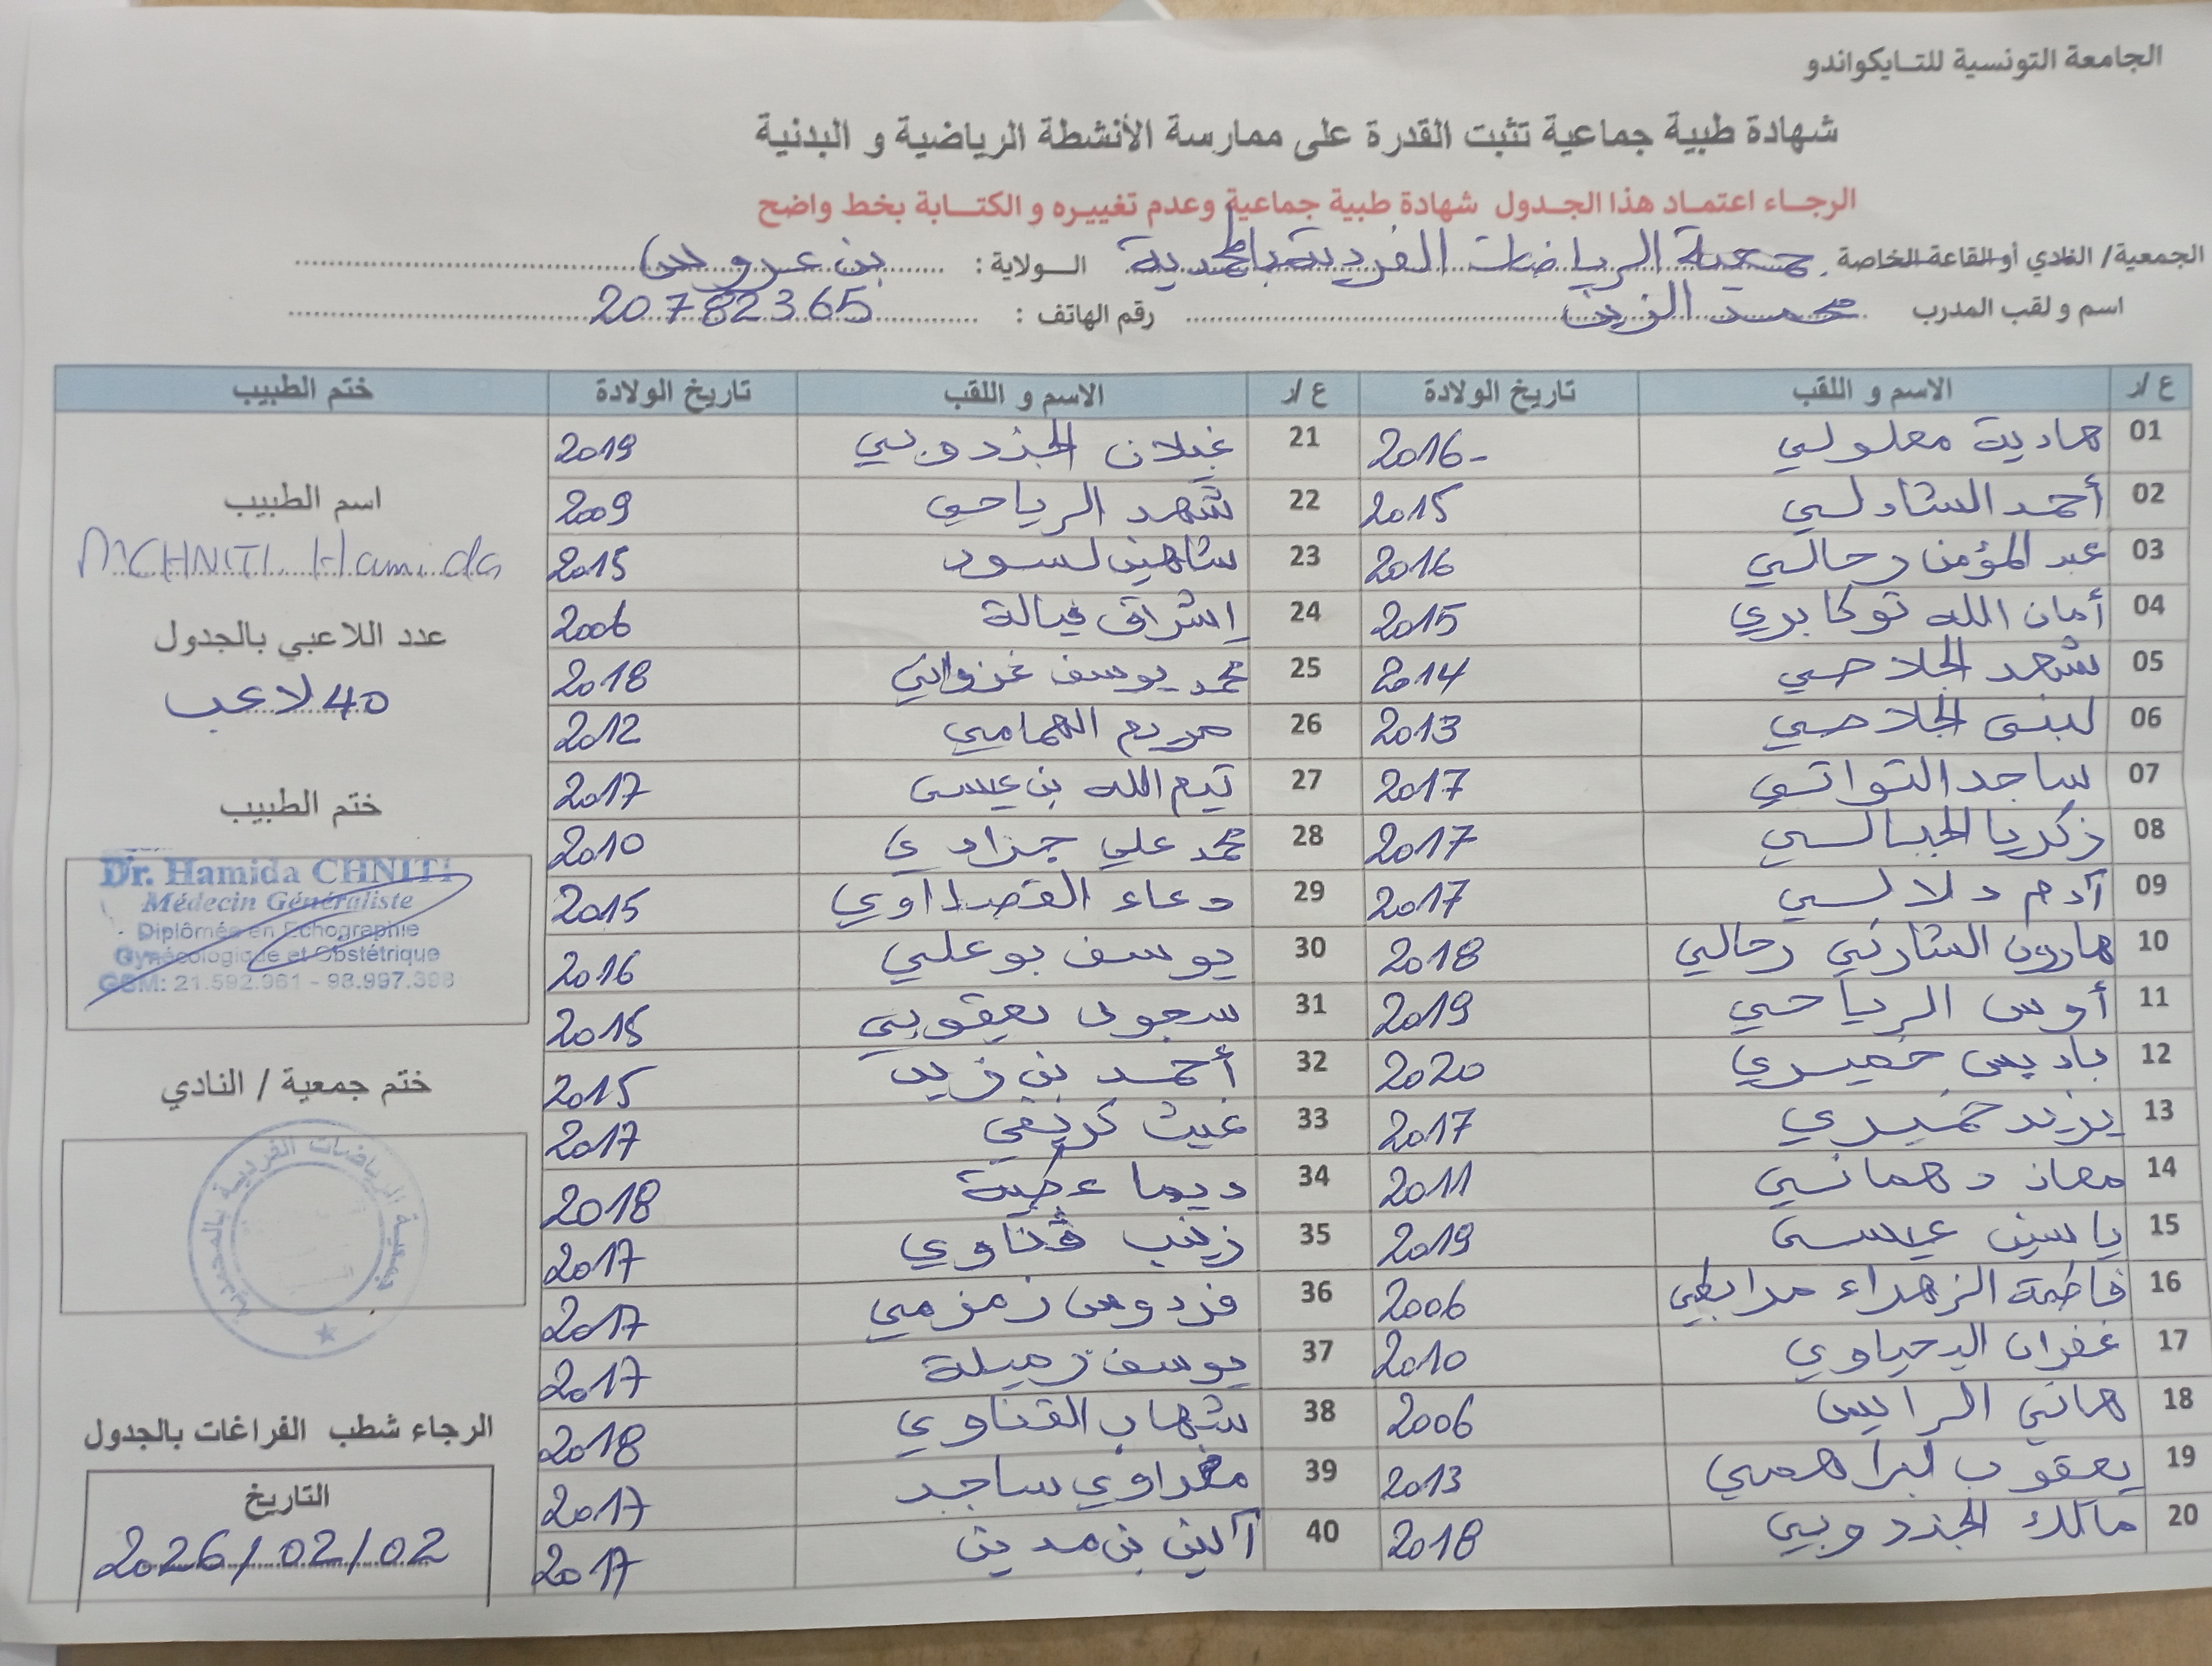 الجامعة التونسية للتــايكواندو
شهادة طبية جماعية تثبت القدرة على ممارسة الأنشطة الرياضية و البدنية
الرجــاء اعتمـاد هذا الجـدول شهادة طبية جماعية وعدم تغييـره و الكتــابة بخط واضح
الجمعية/ النادي أو القاعة الخاصة جمعية الرياضات الفردية بالمحمدية الــولاية : بن عروس
اسم و لقب المدرب محمد الزين رقم الهاتف : 20782365
ع/ر الاسم و اللقب تاريخ الولادة ع/ر الاسم و اللقب تاريخ الولادة ختم الطبيب
01 هادية معلولي 2016-
02 أحمد الشاذلي 2015
03 عبد المؤمن رحالي 2016
04 أمان الله توكابري 2015
05 شهد الجلاصي 2014
06 لبنى الجلاصي 2013
07 ساجد التواتي 2017
08 زكريا الجبالي 2017
09 آدم دلالي 2017
10 هارون الشارني رحالي 2018
11 أوس الرياحي 2019
12 باديس خميري 2020
13 يزيد خميري 2017
14 معاذ دهماني 2011
15 ياسين عيسى 2019
16 فاطمة الزهراء مرابطي 2006
17 غفران اليحياوي 2010
18 هاني الرايس 2006
19 يعقوب ابراهمي 2013
20 مالك الجندوبي 2018
21 غيلان الجندوبي 2019
22 شهد الرياحي 2009
23 شاهين لسود 2015
24 إشراق فيالة 2006
25 محمد يوسف غزواني 2018
26 مريم الهمامي 2012
27 تيم الله بن عيسى 2017
28 محمد علي جزادي 2010
29 دعاء القصداوي 2015
30 يوسف بوعلي 2016
31 سجود يعقوبي 2015
32 أحمد بن زيد 2015
33 غيث كريفي 2017
34 ديما عجينة 2018
35 زينب ڤناوي 2017
36 فردوس زمزمي 2017
37 يوسف زميلة 2017
38 شهاب القناوي 2018
39 مغراوي ساجد 2017
40 آلين بن مدين 2017
اسم الطبيب
Dr CHNITI Hamida
عدد اللاعبي بالجدول
40 لاعب
ختم الطبيب
Dr. Hamida CHNITI
Médecin Généraliste
Diplômée en Echographie
Gynécologique et Obstétrique
GSM: 21.592.961 - 98.997.398
ختم جمعية / النادي
جمعية الرياضات الفردية بالمحمدية
الرجاء شطب الفراغات بالجدول
التاريخ
2026/02/02